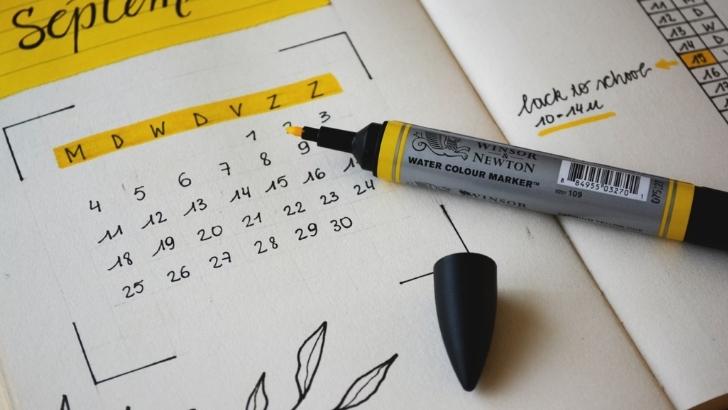 Septem
M D W D V Z Z
1 2 3
4 5 6 7 8 9
11 12 13 14 15 16
18 19 20 21 22 23 24
25 26 27 28 29 30
back to school
10-14u
11 M
12 D
13 W
14 D
15
16
WINSOR
& NEWTON
WATER COLOUR MARKER™
WINSOR
109